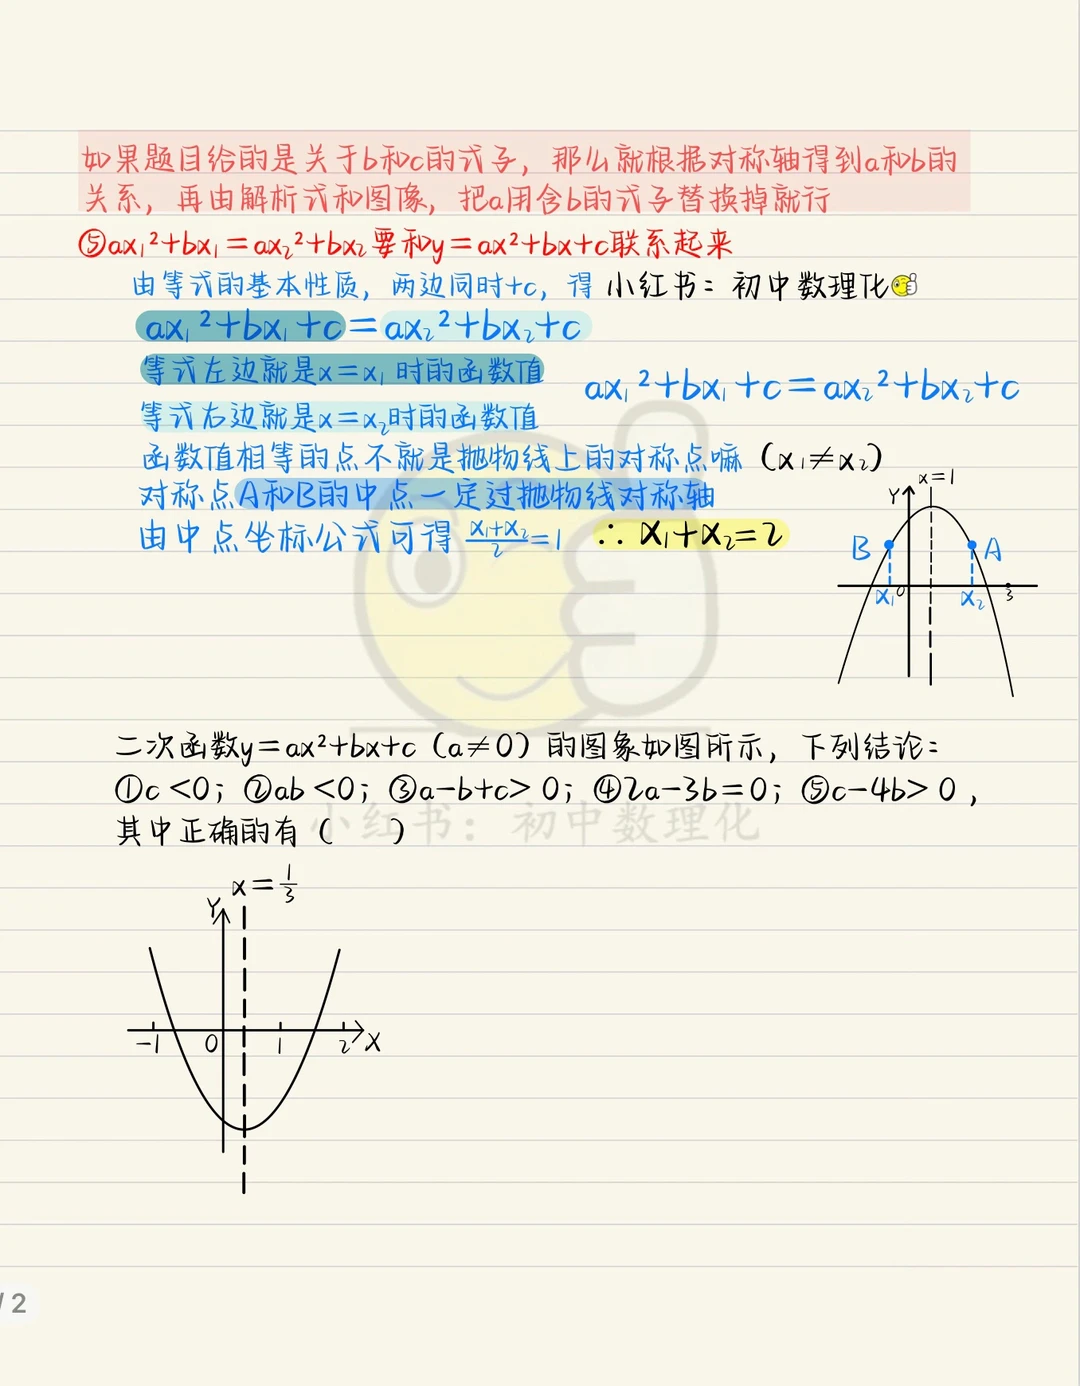 如果题目给的是关于b和c的式子，那么就根据对称轴得到a和b的
关系，再由解析式和图像，把a用含b的式子替换掉就行
⑤ax₁²+bx₁=ax₂²+bx₂要和y=ax²+bx+c联系起来
由等式的基本性质，两边同时+c，得 小红书：初中数理化
ax₁²+bx₁+c=ax₂²+bx₂+c
等式左边就是x=x₁时的函数值
ax₁²+bx₁+c=ax₂²+bx₂+c
等式右边就是x=x₂时的函数值
函数值相等的点不就是抛物线上的对称点嘛（x₁≠x₂）
对称点A和B的中点一定过抛物线对称轴
由中点坐标公式可得 (x₁+x₂)/2=1 ∴x₁+x₂=2
x=1
Y
B A
x₁ 0 x₂ 3
二次函数y=ax²+bx+c（a≠0）的图象如图所示，下列结论：
①c<0；②ab<0；③a-b+c>0；④2a-3b=0；⑤c-4b>0，
其中正确的有（ ）
小红书：初中数理化
x=1/3
Y
-1 0 1 2 X
/2